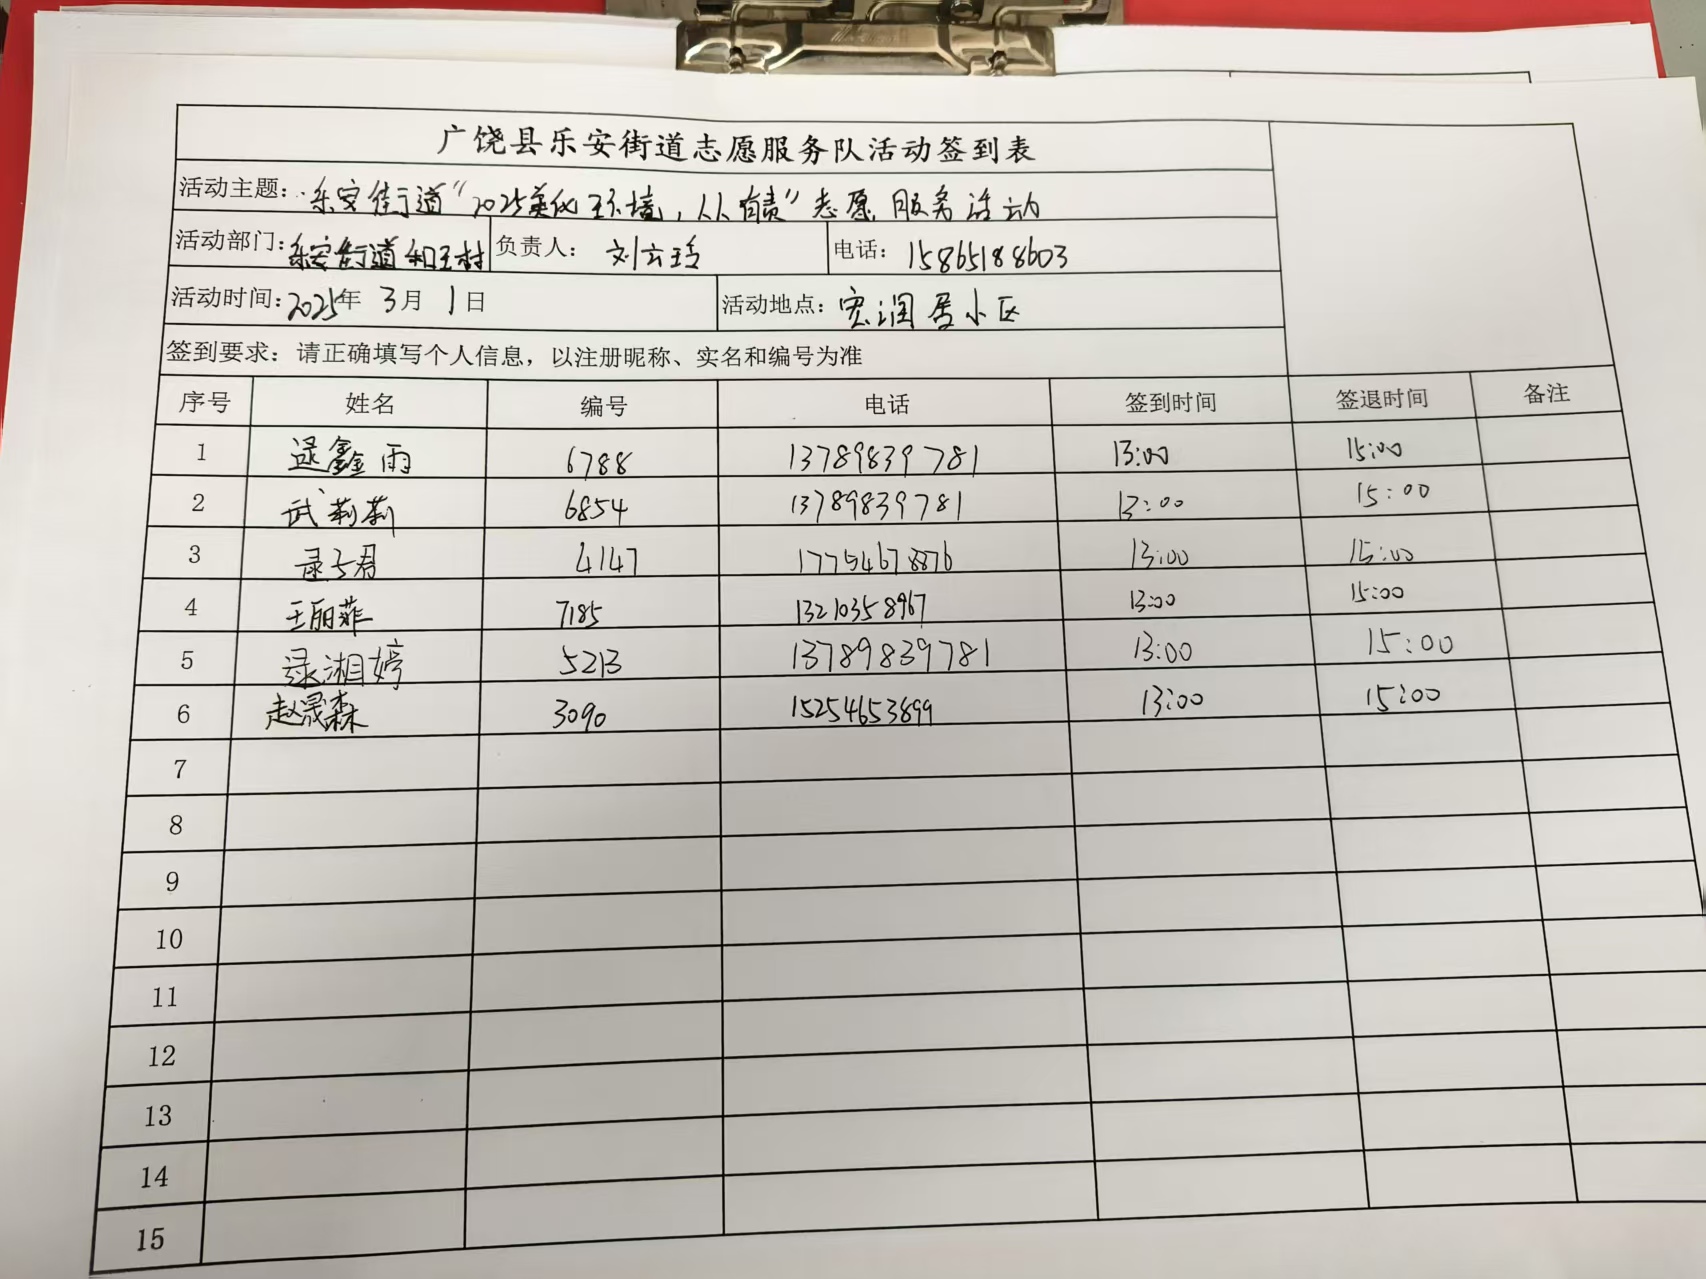 广饶县乐安街道志愿服务队活动签到表
活动主题：乐安街道“2025美化环境，人人有责”志愿服务活动
活动部门：乐安街道和王村 负责人： 刘云玲 电话： 15865188603
活动时间：2025年 3月 1日 活动地点：宏润居小区
签到要求：请正确填写个人信息，以注册昵称、实名和编号为准
序号 姓名 编号 电话 签到时间 签退时间 备注
1 逯鑫雨 6788 13789839781 13:00 15:00
2 武莉莉 6854 13789839781 13:00 15:00
3 4147 17754678876 13:00 15:00
4 王丽菲 7185 13210358967 13:00 15:00
5 湘婷 5213 13789839781 13:00 15:00
6 赵晟森 3090 15254653899 13:00 15:00
7
8
9
10
11
12
13
14
15